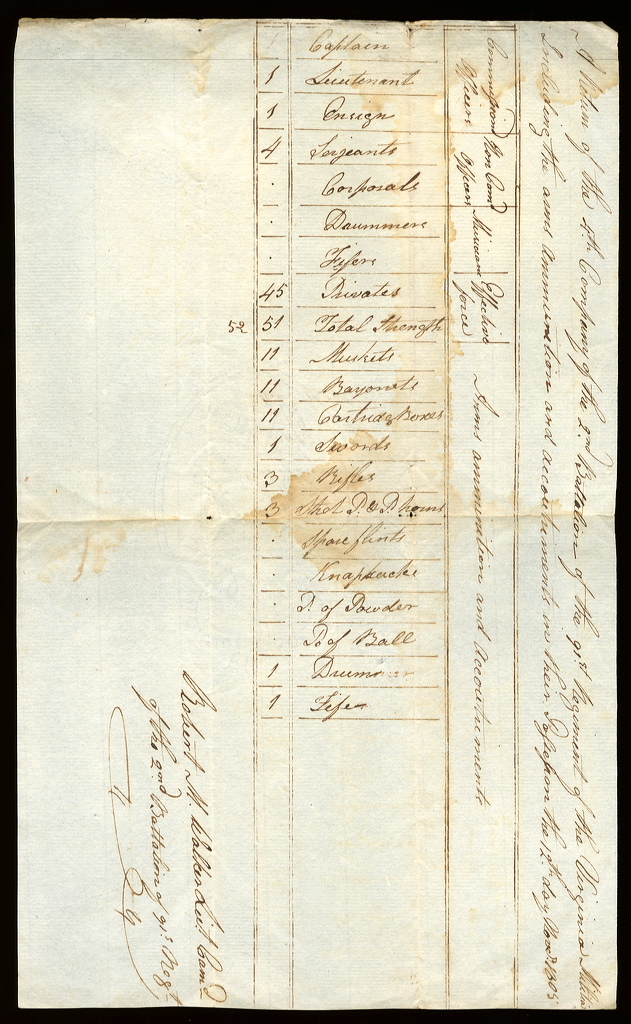 A Return of the 4th Company of the 2nd Battalion of the 91st Regiment of the Virginia Militia
Including the arms ammunition and accoutrements in their Possession the 12th day Novr. 1805
Commissiond Officers
Non Comd Officers
Musicians
Effective force
Arms ammunition and accoutrements
1 Captain
1 Lieutenant
1 Ensign
4 Serjeants
. Corporals
. Daummers
. Fifers
45 Privates
52 51 Total Strength
11 Muskets
11 Bayonets
11 Cartridg Boxes
1 Swords
3 Rifles
3 Shot P. & P. horns
. Spare flints
. Knapsacks
. P. of Powder
. Po of Ball
1 Drummer
1 Fifer
Robert M. Walker Lieut Comd
of the 2nd Battalion of 91st Regt